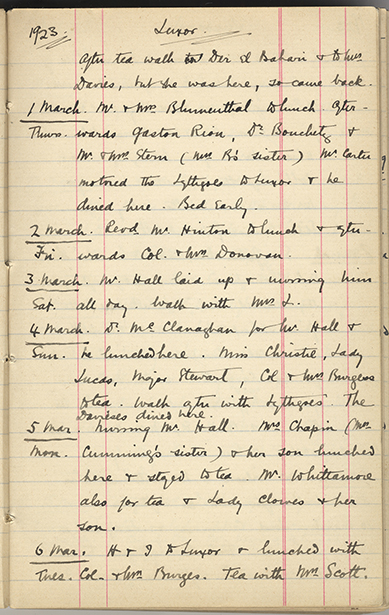 1923. Luxor.
after tea walk to Der el Bahari & to Mrs
Davies, but she was here, so came back.
1 March. Mr. & Mrs Blumenthal to lunch after-
Thurs. wards Gaston Rion, Dr. Bouchetz &
Mr. & Mrs Stern (Mrs B's sister) Mr Carter
motored the Lythgoes to Luxor & he
dined here. Bed Early.
2 March. Revd Mr. Hinton to lunch & after-
Fri. wards Col. & Mrs Donovan.
3 March. Mr. Hall laid up & nursing him
Sat. all day. Walk with Mrs L.
4 March. Dr. McClanaghan for Mr. Hall &
Sun. he lunched here. Miss Christie, Lady
Lucas, Major Stewart, Col & Mrs Burgess
to tea. Walk after with Lythgoes. The
Davieses dined here.
5 Mar. Nursing Mr. Hall. Mrs Chapin (Mrs
Mon. Cumming's sister) & her son lunched
here & stayed to tea. Mr. Whittamore
also for tea & Lady Clowes & her
son.
6 Mar. H & I to Luxor & lunched with
Tues. Col. & Mrs Burges. Tea with Mrs Scott.